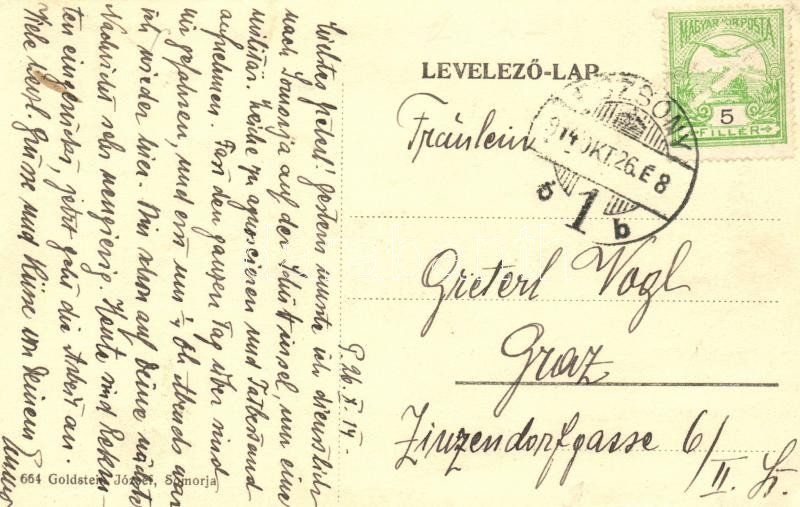 LEVELEZŐ-LAP
MAGYAR KIR. POSTA
5
FILLER
POZSONY
914 OKT 26. E 8
1
b
Fräulein
Greterl Vogl
Graz
Zinzendorfgasse 6/
II. St.
P. 26. X. 14.
Liebes Greterl! Gestern musste ich dienstlich
nach Somorja auf der Schüttinsel, um eine
militär. Leiche zu agnoscieren und Tatbestand
aufnehmen. Fast den ganzen Tag über sind
wir gefahren, und erst um Abends war
ich wieder hier. Bin schon auf Deine nächste
Nachricht sehr neugierig. Heute sind Rekru-
ten eingerückt, jetzt geht die Arbeit an.
Viele herzl. Grüsse und Küsse von Deinem
664 Goldstein József, Somorja